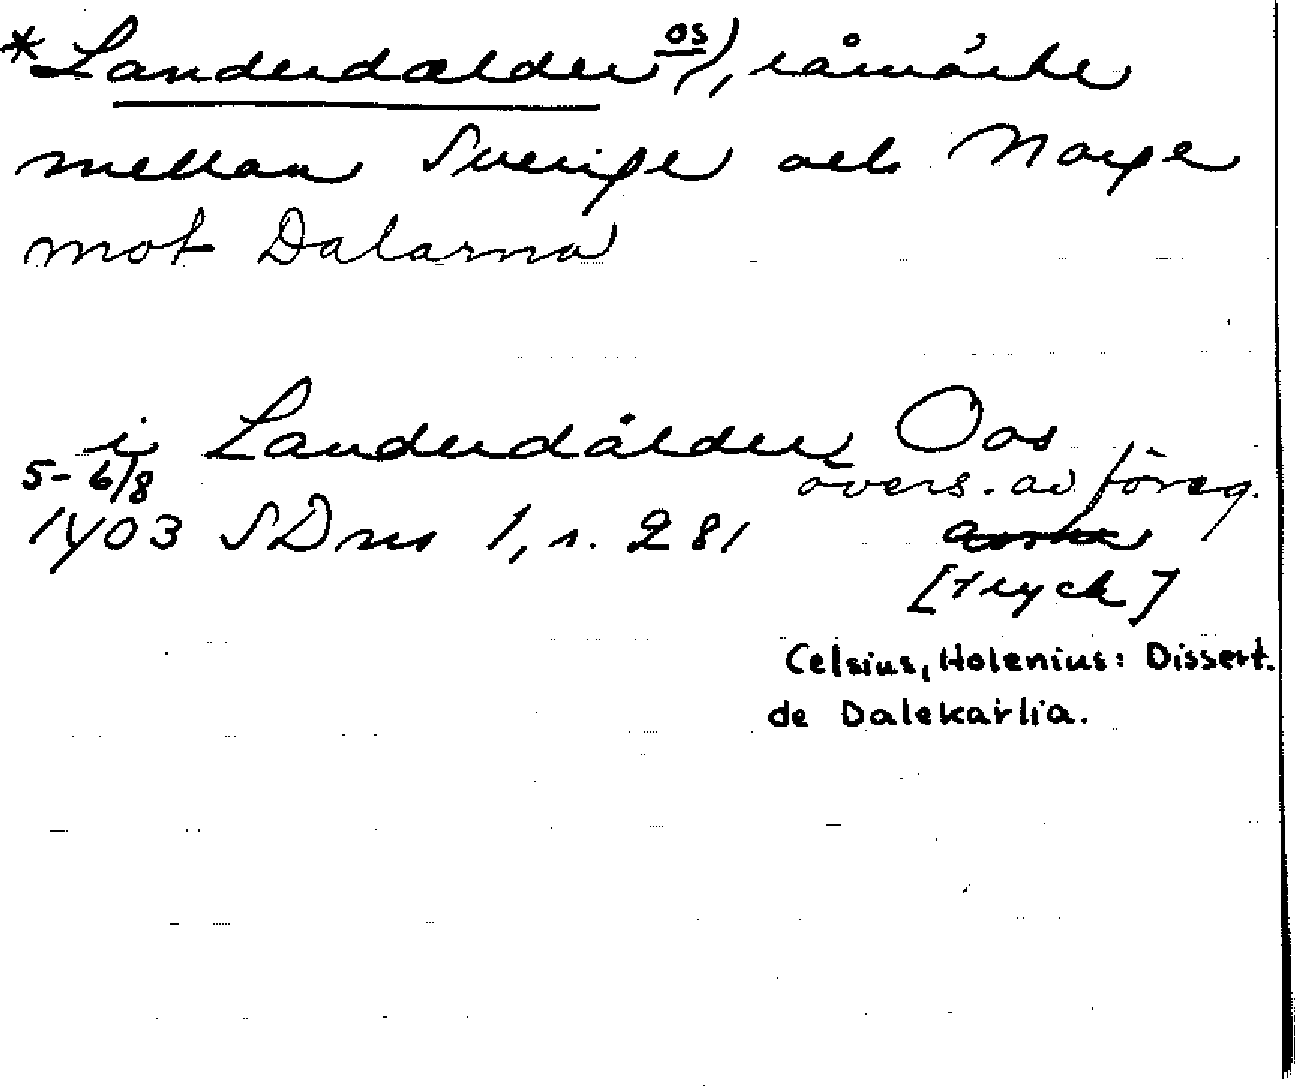 *Landerdælder os), råmärke
mellan Sverige och Norge
mot Dalarna
i Landerdålder Oos
5-6/8 övers. av föreg.
1403 SDns 1, s. 281
[tryck]
Celsius, Holenius: Dissert.
de Dalekarlia.